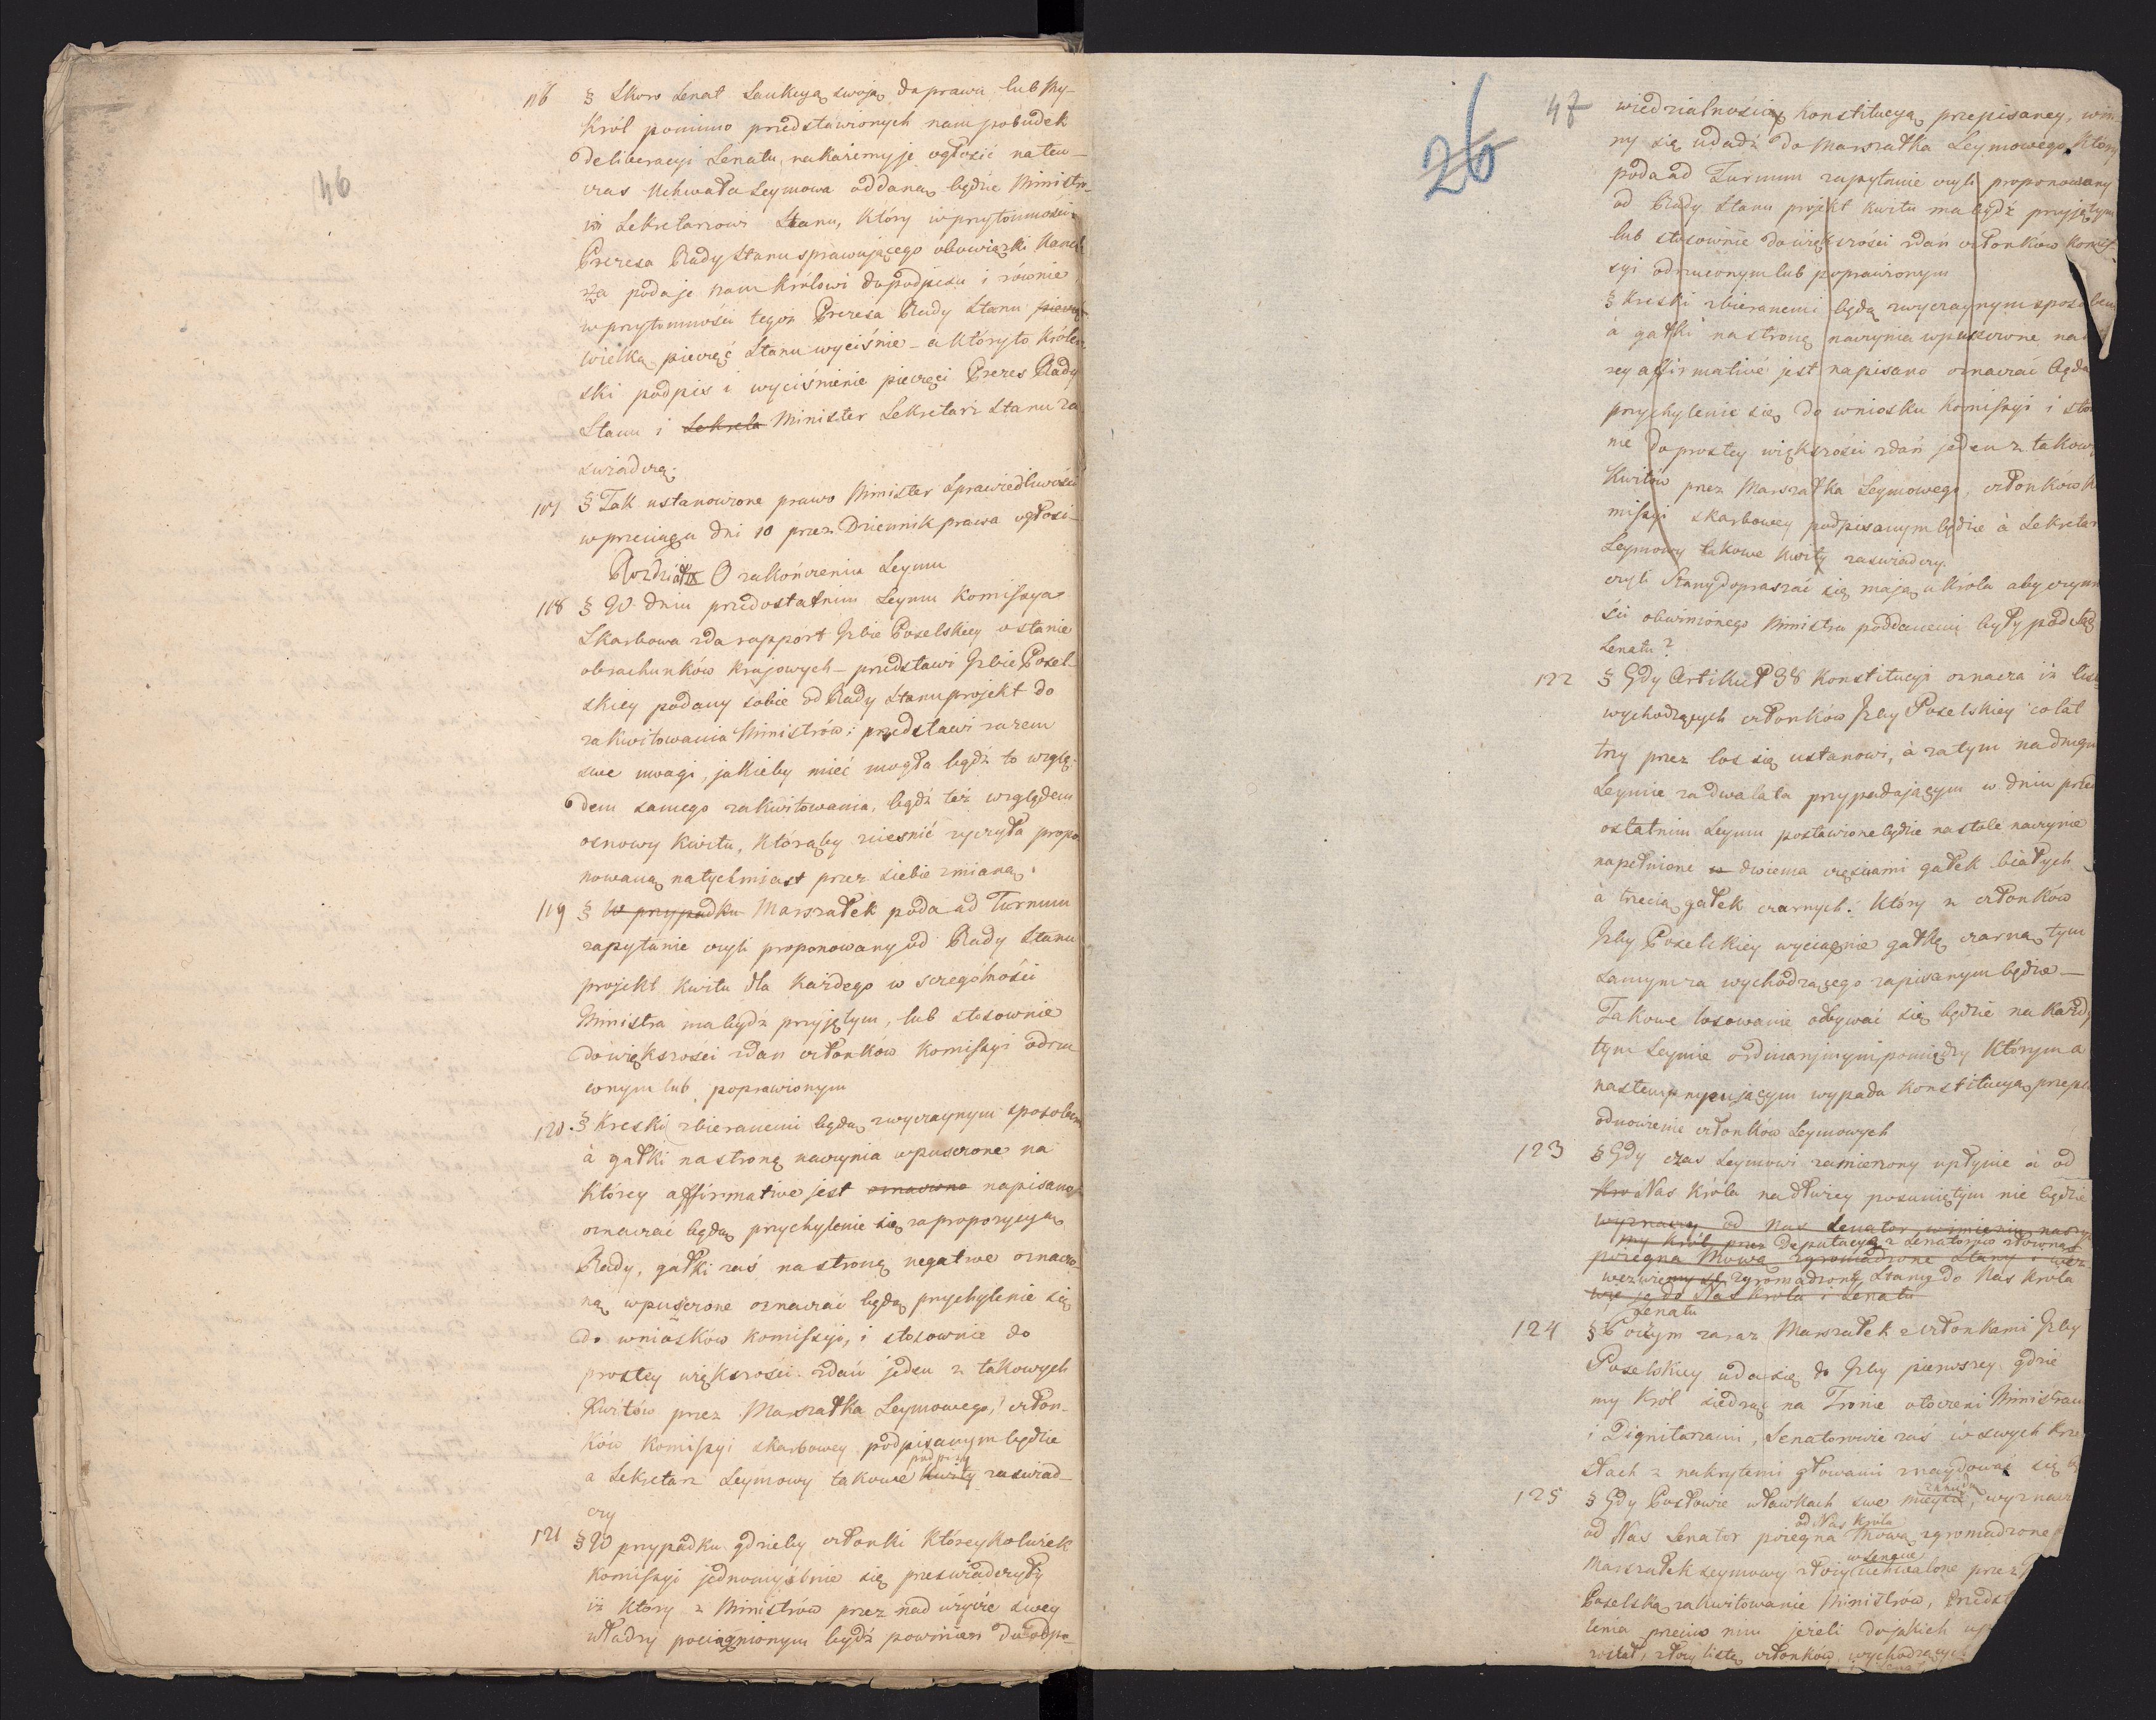 46
116 § Skoro Senat Sankcyą swoją da prawu lub My
Król pomimo przedstawionych nam pobudek
deliberacyi Senatu, nakażemy je ogłosić na ten-
czas Uchwała Seymowa oddaną będzie Ministro-
wi Sekretarzowi Stanu, który w przytomności
Prezesa Rady Stanu sprawującego obowiązki Kancl
rza podaje Nam Królowi do podpisu i równie
w przytomności tegoż Prezesa Rady Stanu pieczęć
wielką pieczęć Stanu wyciśnie – a któryto Królew-
ski podpis i wyciśnienie pieczęci Prezes Rady
Stanu i Sekreta Minister Sekretarz Stanu za
świadczą.
117 § Tak ustanowione prawo Minister Sprawiedliwości
w przeciągu dni 10 przez Dziennik prawa ogłosi –
Rozdział IX O zakończeniu Seymu
118 § W dniu przedostatnim Seymu Komissya
Skarbowa zda rapport Izbie Poselskiey o stanie
obrachunków krajowych – przedstawi Izbie Posel-
skiey podany sobie od Rady Stanu projekt do
zakwitowania Ministrów: przedstawi razem
swe uwagi, jakieby mieć mogła bądź to wzglę-
dem samego zakwitowania, bądź też względem
osnowy kwitu, którąby ziesnić życzyła propo
nowaną natychmiast przez siebie zmianą.
119 § W przypadku Marszałek poda ad Turnum
zapytanie czyli proponowany od Rady Stanu
projekt kwitu dla każdego w szczególności
Ministra ma bydź przyjętym, lub stosownie
do większości zdań członków Komissyi odrzu
conym lub poprawionym
120. § Kreski zbieranemi będą zwyczaynym sposobem
à gałki na stronę naczynia wpuszczone na
którey affirmative jest oznaczone napisano
oznaczać będą przychylenie się za propozycyą
Rady, gałki zaś na stronę negatwe oznaczo-
ną wpuszczone oznaczać będą przychylenie się
do wniosków Komissyi, i stosownie do
prostey większości zdań jeden z takowych
Kwitów przez Marszałka Seymowego, człon-
ków Komissyi skarbowey podpisanym będzie
podpisy
a Sekretarz Seymowy takowe kwity zaświad-
czy
121 § W przypadku gdzieby członki któreykolwiek
Komissyi jednomyślnie się przeświadczyły
iż który z Ministrów przez nad użycie swey
władzy pociągnionym bydź powinien do odpo-
26
47 wiedzialności Konstitucyą przepisaney, win
ny się udadź do Marszałka Seymowego. Który
poda ad Turnum zapytanie czyli proponowany
od Rady Stanu projekt kwitu ma bydź przyjętym
lub stosownie do większości zdań członków Komis-
syi odrzuconym lub poprawionym
§ Kreski zbieranemi będą zwyczaynym sposobem
à gałki na stronę naczynia wpuszczone na
rey affirmative jest napisano oznaczać będą
przychylenie się do wniosku Komissyi i stos
nie do prostey większości zdań jeden z takowy
Kwitów przez Marszałka Seymowego, członków K
missyi skarbowey podpisanym będzie à Sekretar
Seymowy takowe kwity zaświadczy.
czyli Stany dopraszać się mają u Króla aby czynno
ści obwinionego Ministra poddanemi były pod sąd
Senatu?
122 § Gdy Artikuł 38 Konstitucyi oznacza iż list
wychodzących członków Izby Poselskiey co lat
trzy przez los się ustanowi, à zatym na drugim
Seymie za dwa lata przypadającym w dniu przed
ostatnim Seymu postawione będzie na stole naczynie
napełnione w dwiema częściami gałek białych
à trzecią gałek czarnych: Który z członków
Izby Poselskiey wyciągnie gałkę czarną tym
samym za wychodzącego zapisanym będzie –
Takowe losowanie odbywać się będzie na każdy
tym Seymie ordinaryinym pomiędzy którym a
nastempnymującym wypada Konstitucyą przepis
odnowienie członków Seymowych
123 § Gdy czas Seymowi zamierzony upłynie à od
Kro Nas Króla nadłużey posuniętym nie będzie
wyznaczy od Nas Senator w imieniu naszy
my Król przez Deputacyą z Senatorów złożoną
pożegna Mową zgromadzone Stany i wez
wezwiemy się zgromadzone Stany do Nas Króla
wie je do Nas Króla i Senatu
Senatu
124 § Poczym zaraz Marszałek z członkami Izby
Poselskiey uda się do Izby pierwszey gdzie
my Król siedząc na Tronie otoczeni Ministram
i Dignitarzami, Senatorowie zaś w swych krze
słach z nakrytemi głowami znaydować się bę
125 § Gdy Posłowie w ławkach swe mieysca, wyznacz
od Nas Króla
od Nas Senator pożegna Mową zgromadzone
w Senacie
Marszałek Seymowy złoży uchwalone przez
Poselską zakwitowanie Ministrów, Przedst
lenia przeciw nim jeżeli do jakich up
został, złoży listę członków wychodzących